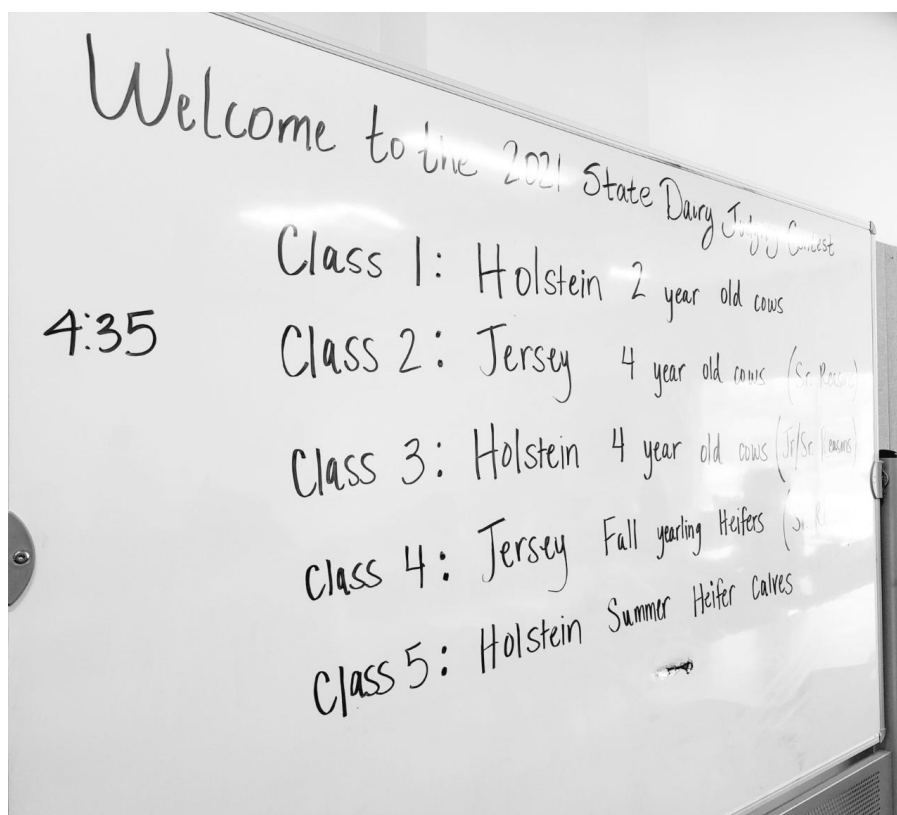 Welcome to the 2021 State Dairy Judging Contest
Class 1: Holstein 2 year old cows
4:35
Class 2: Jersey 4 year old cows (Sr. Reasons)
Class 3: Holstein 4 year old cows (Jr/Sr. Reasons)
Class 4: Jersey Fall yearling Heifers (Sr.
Class 5: Holstein Summer Heifer Calves